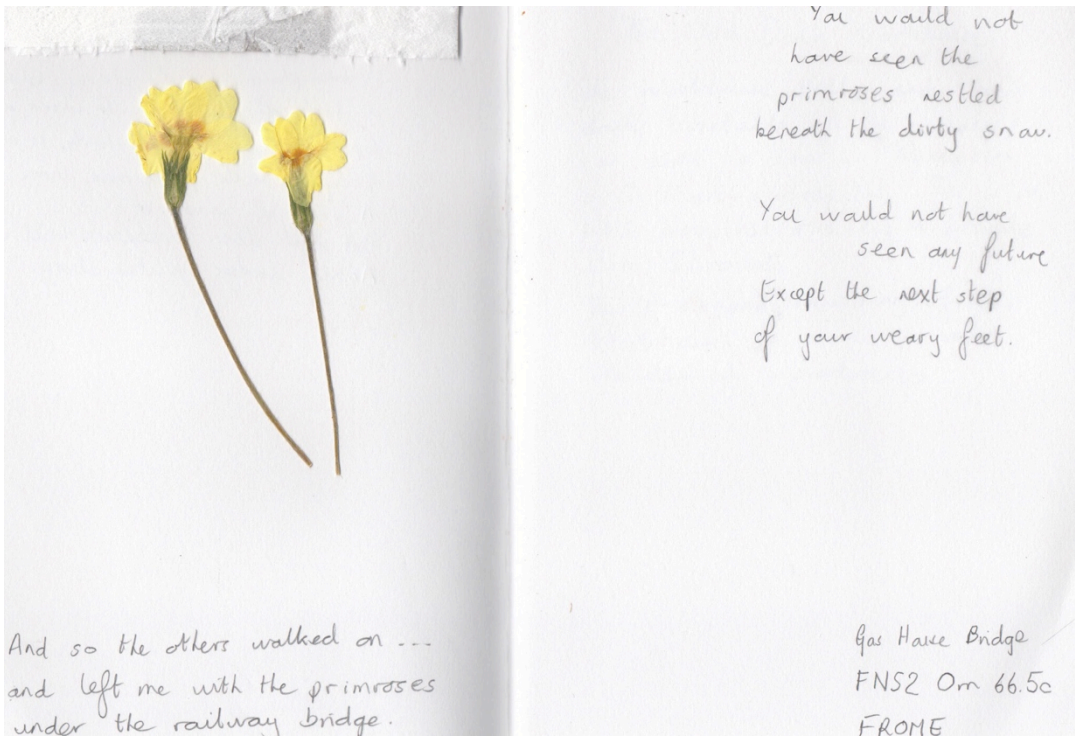 And so the others walked on ...
and left me with the primroses
under the railway bridge.
You would not
have seen the
primroses nestled
beneath the dirty snow.
You would not have
seen any future
Except the next step
of your weary feet.
Gas House Bridge
FNS2 0m 66.5c
FROME